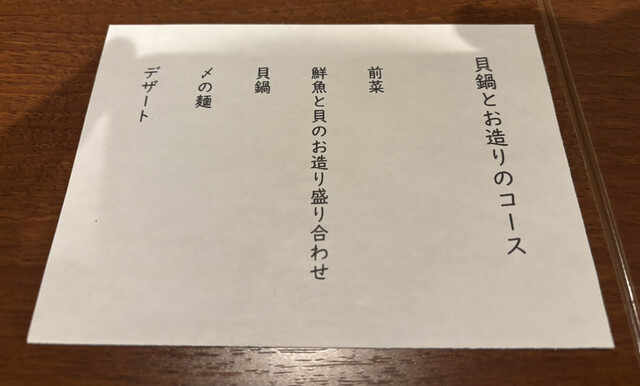 貝鍋とお造りのコース
前菜
鮮魚と貝のお造り盛り合わせ
貝鍋
〆の麺
デザート